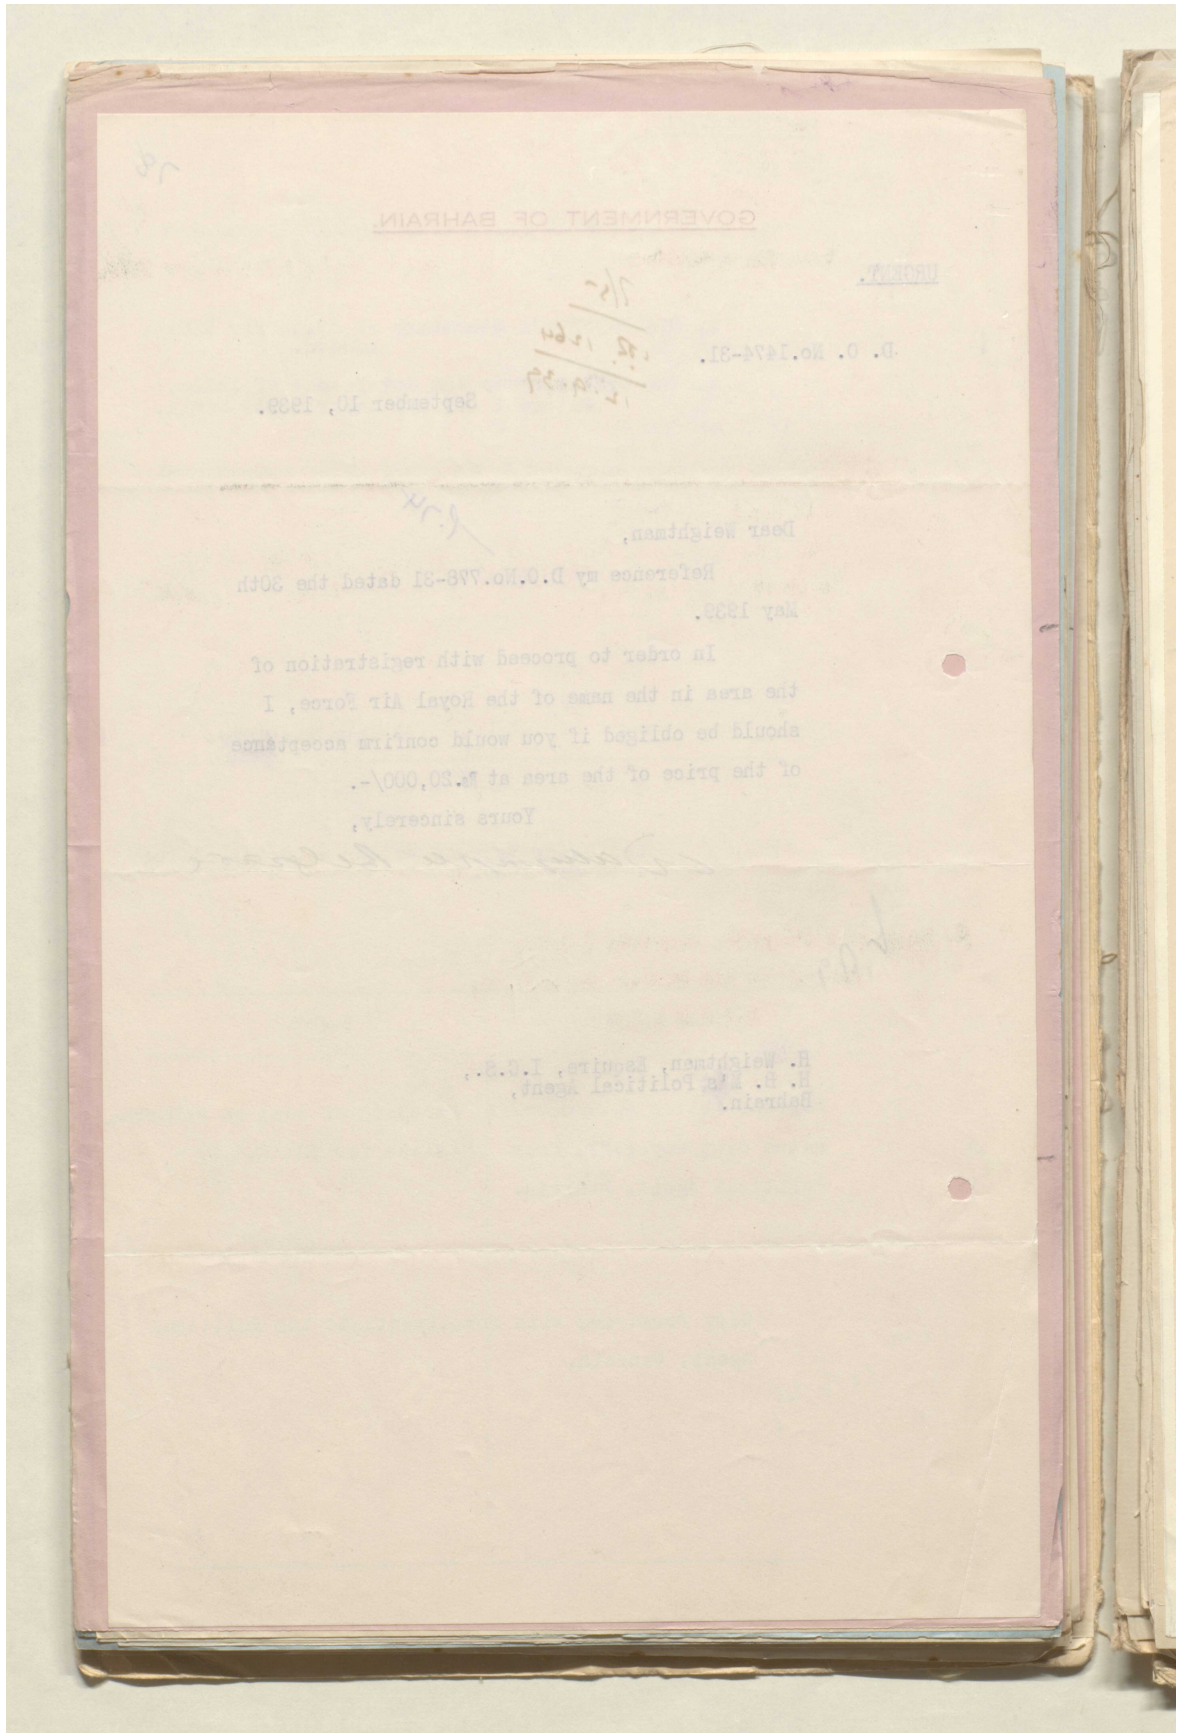 GOVERNMENT OF BAHRAIN.
URGENT.
7/5
R. 1264
12.9.39
D. O. No.1474-31.
September 10, 1939.
p. 74
Dear Weightman,
Reference my D.O.No.778-31 dated the 30th
May 1939.
In order to proceed with registration of
the area in the name of the Royal Air Force, I
should be obliged if you would confirm acceptance
of the price of the area at Rs.20,000/-.
Yours sincerely,
H. Weightman, Esquire, I.C.S.,
H. B. M's Political Agent,
Bahrain.